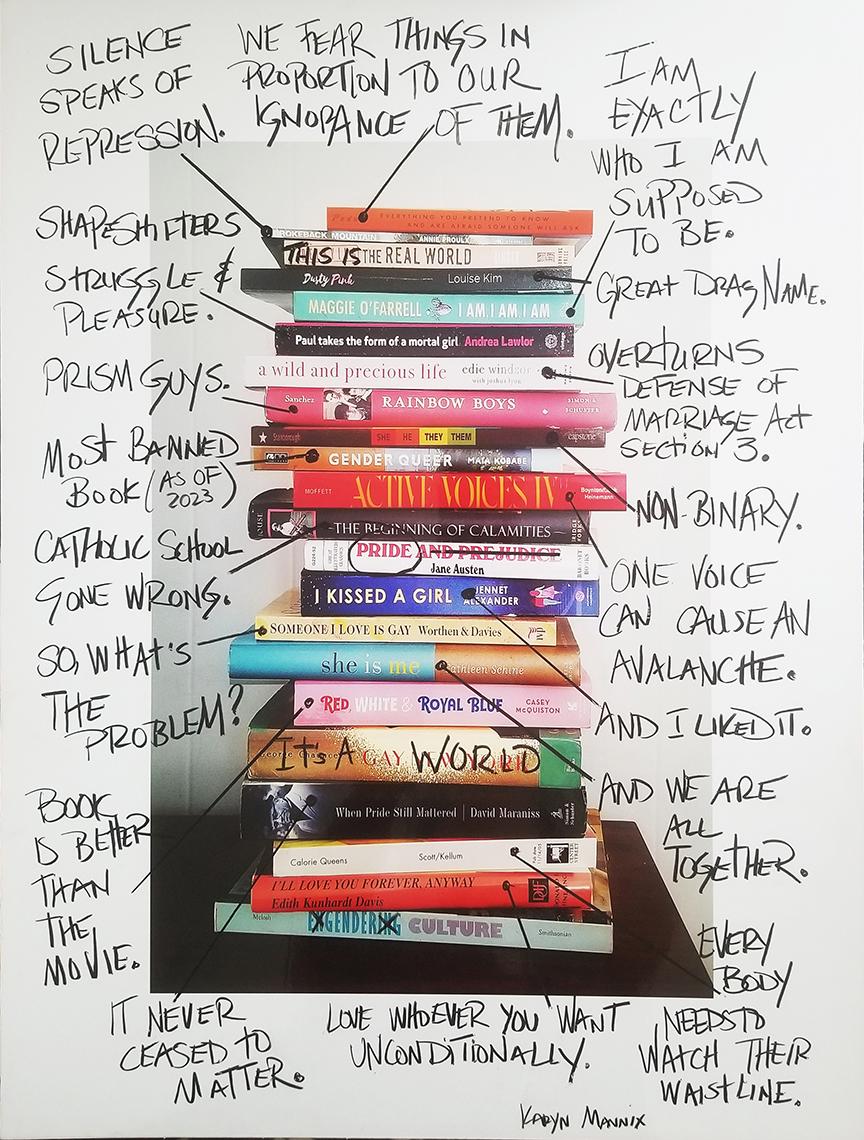 SILENCE
SPEAKS OF
REPRESSION.
WE FEAR THINGS IN
PROPORTION TO OUR
IGNORANCE OF THEM.
I AM
EXACTLY
WHO I AM
SUPPOSED
TO BE.
SHAPESHIFTERS
STRUGGLE &
PLEASURE.
GREAT DRAG NAME.
PRISM GUYS.
OVERTURNS
DEFENSE OF
MARRIAGE ACT
SECTION 3.
MOST BANNED
BOOK (AS OF
2023)
NON-BINARY.
CATHOLIC SCHOOL
GONE WRONG.
ONE VOICE
CAN CAUSE AN
AVALANCHE.
SO, WHAT'S
THE
PROBLEM?
AND I LIKED IT.
BOOK
IS BETTER
THAN
THE
MOVIE.
AND WE ARE
ALL
TOGETHER.
IT NEVER
CEASED TO
MATTER.
LOVE WHOEVER YOU WANT
UNCONDITIONALLY.
EVERY
BODY
NEEDS TO
WATCH THEIR
WAISTLINE.
KARYN MANNIX
EVERYTHING YOU PRETEND TO KNOW
AND ARE AFRAID SOMEONE WILL ASK
BROKEBACK MOUNTAIN ANNIE PROULX
THIS IS THE REAL WORLD
Dusty Pink Louise Kim
MAGGIE O'FARRELL I AM, I AM, I AM
Paul takes the form of a mortal girl Andrea Lawlor
a wild and precious life edie windsor
with joshua lyon
Sanchez RAINBOW BOYS SIMON & SCHUSTER
SHE HE THEY THEM capstone
GENDER QUEER MAIA KOBABE
MOFFETT ACTIVE VOICES IV Boynton/Heinemann
THE BEGINNING OF CALAMITIES
PRIDE AND PREJUDICE
Jane Austen
I KISSED A GIRL JENNET
ALEXANDER
SOMEONE I LOVE IS GAY Worthen & Davies ivp
she is me Cathleen Schine
RED, WHITE & ROYAL BLUE CASEY
McQUISTON
IT'S A GAY WORLD
When Pride Still Mattered David Maraniss Simon & Schuster
Calorie Queens Scott/Kellum CENTER STREET
I'LL LOVE YOU FOREVER, ANYWAY
Edith Kunhardt Davis DIF
McIntosh ENGENDERING CULTURE Smithsonian